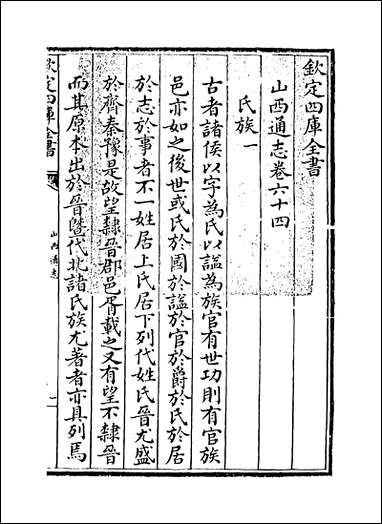 欽定四庫全書
山西通志卷六十四
氏族一
古者諸侯以字為氏以謚為族官有世功則有官族
邑亦如之後世或氏於國於謚於官於爵於氏於居
於志於事者不一姓居上氏居下列代姓氏晉尤盛
於齊秦豫是故望隸晉郡邑胥載之又有望不隸晉
而其原本出於晉暨代北諸氏族尤著者亦具列焉
欽定四庫全書
山西通志
一